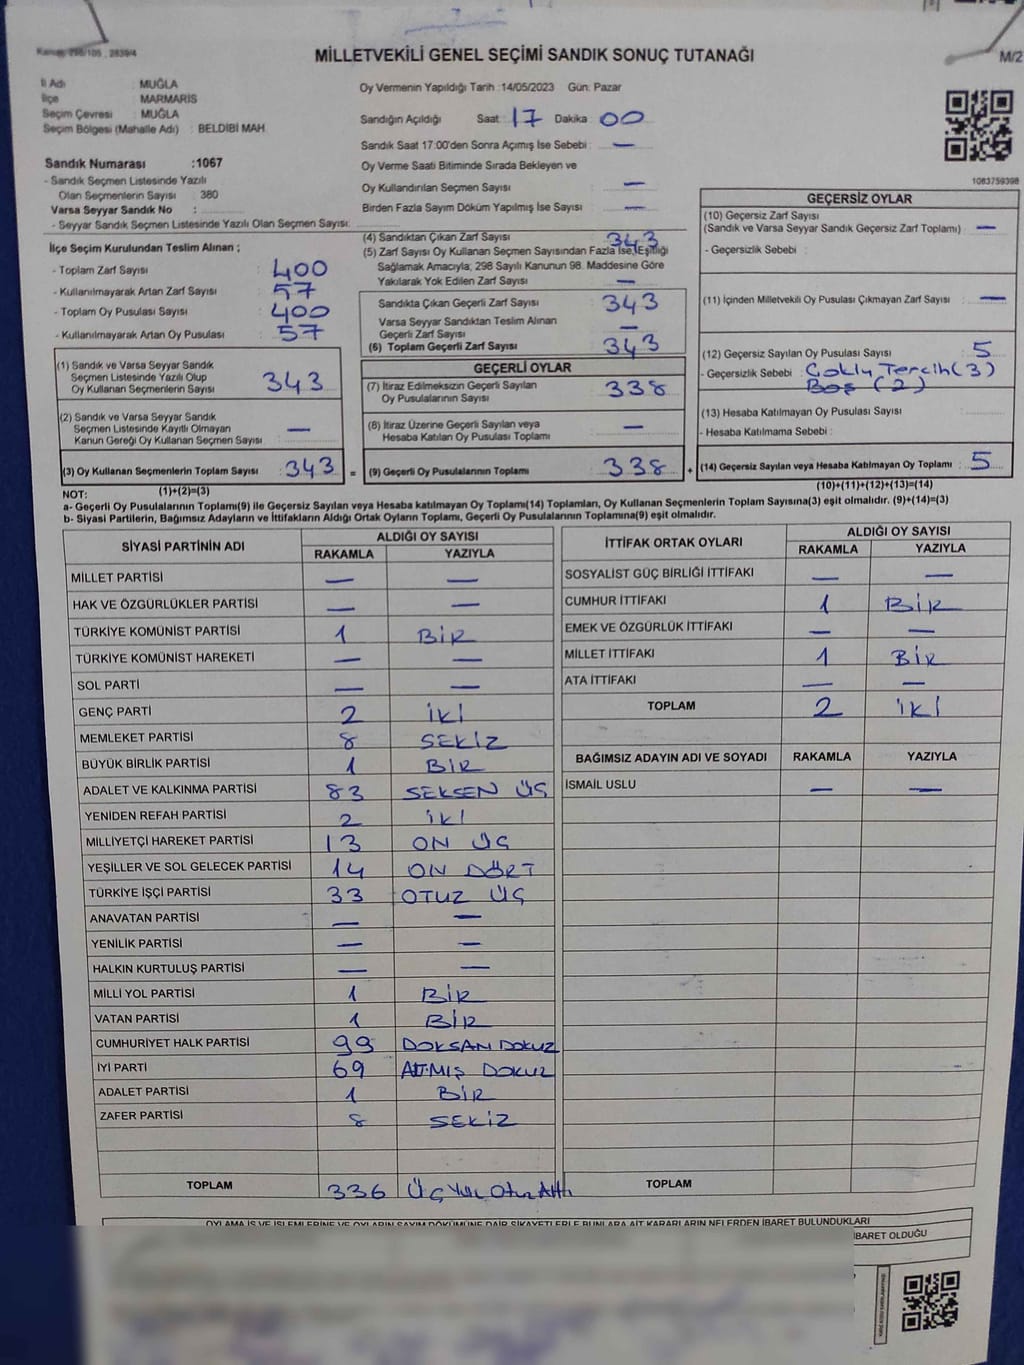 MİLLETVEKİLİ GENEL SEÇİMİ SANDIK SONUÇ TUTANAĞI
M/2
İl Adı : MUĞLA
İlçe : MARMARİS
Seçim Çevresi : MUĞLA
Seçim Bölgesi (Mahalle Adı) : BELDİBİ MAH
Sandık Numarası :1067
- Sandık Seçmen Listesinde Yazılı
Olan Seçmenlerin Sayısı : 380
Varsa Seyyar Sandık No :
- Seyyar Sandık Seçmen Listesinde Yazılı Olan Seçmen Sayısı:
Oy Vermenin Yapıldığı Tarih :14/05/2023 Gün: Pazar
Sandığın Açıldığı Saat: 17 Dakika 00
Sandık Saat 17:00'den Sonra Açılmış İse Sebebi : —
Oy Verme Saati Bitiminde Sırada Bekleyen ve
Oy Kullandırılan Seçmen Sayısı —
Birden Fazla Sayım Döküm Yapılmış İse Sayısı —
1083759398
İlçe Seçim Kurulundan Teslim Alınan ;
- Toplam Zarf Sayısı : 400
- Kullanılmayarak Artan Zarf Sayısı : 57
- Toplam Oy Pusulası Sayısı : 400
- Kullanılmayarak Artan Oy Pusulası : 57
(1) Sandık ve Varsa Seyyar Sandık
Seçmen Listesinde Yazılı Olup
Oy Kullanan Seçmenlerin Sayısı 343
(2) Sandık ve Varsa Seyyar Sandık
Seçmen Listesinde Kayıtlı Olmayan
Kanun Gereği Oy Kullanan Seçmen Sayısı : —
(3) Oy Kullanan Seçmenlerin Toplam Sayısı : 343 =
(4) Sandıktan Çıkan Zarf Sayısı 343
(5) Zarf Sayısı Oy Kullanan Seçmen Sayısından Fazla İse, Eşitliği
Sağlamak Amacıyla; 298 Sayılı Kanunun 98. Maddesine Göre
Yakılarak Yok Edilen Zarf Sayısı —
Sandıkta Çıkan Geçerli Zarf Sayısı 343
Varsa Seyyar Sandıktan Teslim Alınan
Geçerli Zarf Sayısı —
(6) Toplam Geçerli Zarf Sayısı 343
GEÇERLİ OYLAR
(7) İtiraz Edilmeksizin Geçerli Sayılan
Oy Pusulalarının Sayısı 338
(8) İtiraz Üzerine Geçerli Sayılan veya
Hesaba Katılan Oy Pusulası Toplamı —
(9) Geçerli Oy Pusulalarının Toplamı 338 +
GEÇERSİZ OYLAR
(10) Geçersiz Zarf Sayısı
(Sandık ve Varsa Seyyar Sandık Geçersiz Zarf Toplamı) : —
- Geçersizlik Sebebi :
(11) İçinden Milletvekili Oy Pusulası Çıkmayan Zarf Sayısı : —
(12) Geçersiz Sayılan Oy Pusulası Sayısı : 5
- Geçersizlik Sebebi : Çoklu Tercih (3)
Boş (2)
(13) Hesaba Katılmayan Oy Pusulası Sayısı :
- Hesaba Katılmama Sebebi :
(14) Geçersiz Sayılan veya Hesaba Katılmayan Oy Toplamı : 5
NOT: (1)+(2)=(3)
(10)+(11)+(12)+(13)=(14)
a- Geçerli Oy Pusulalarının Toplamı(9) ile Geçersiz Sayılan veya Hesaba katılmayan Oy Toplamı(14) Toplamları, Oy Kullanan Seçmenlerin Toplam Sayısına(3) eşit olmalıdır. (9)+(14)=(3)
b- Siyasi Partilerin, Bağımsız Adayların ve İttifakların Aldığı Ortak Oyların Toplamı, Geçerli Oy Pusulalarının Toplamına(9) eşit olmalıdır.
SİYASİ PARTİNİN ADI ALDIĞI OY SAYISI
RAKAMLA YAZIYLA
MİLLET PARTİSİ — —
HAK VE ÖZGÜRLÜKLER PARTİSİ — —
TÜRKİYE KOMÜNİST PARTİSİ 1 BİR
TÜRKİYE KOMÜNİST HAREKETİ — —
SOL PARTİ — —
GENÇ PARTİ 2 İKİ
MEMLEKET PARTİSİ 8 SEKİZ
BÜYÜK BİRLİK PARTİSİ 1 BİR
ADALET VE KALKINMA PARTİSİ 83 SEKSEN ÜÇ
YENİDEN REFAH PARTİSİ 2 İKİ
MİLLİYETÇİ HAREKET PARTİSİ 13 ON ÜÇ
YEŞİLLER VE SOL GELECEK PARTİSİ 14 ON DÖRT
TÜRKİYE İŞÇİ PARTİSİ 33 OTUZ ÜÇ
ANAVATAN PARTİSİ — —
YENİLİK PARTİSİ — —
HALKIN KURTULUŞ PARTİSİ — —
MİLLİ YOL PARTİSİ 1 BİR
VATAN PARTİSİ 1 BİR
CUMHURİYET HALK PARTİSİ 99 DOKSAN DOKUZ
İYİ PARTİ 69 ALTMIŞ DOKUZ
ADALET PARTİSİ 1 BİR
ZAFER PARTİSİ 8 SEKİZ
TOPLAM 336 Üç Yüz Otuz Altı
İTTİFAK ORTAK OYLARI ALDIĞI OY SAYISI
RAKAMLA YAZIYLA
SOSYALİST GÜÇ BİRLİĞİ İTTİFAKI — —
CUMHUR İTTİFAKI 1 BİR
EMEK VE ÖZGÜRLÜK İTTİFAKI — —
MİLLET İTTİFAKI 1 BİR
ATA İTTİFAKI — —
TOPLAM 2 İKİ
BAĞIMSIZ ADAYIN ADI VE SOYADI RAKAMLA YAZIYLA
İSMAİL USLU — —
TOPLAM
OYLAMA İŞ VE İŞLEMLERİNE VE OYLARIN SAYIM DÖKÜMÜNE DAİR ŞİKAYETLERLE BUNLARA AİT KARARLARIN NELERDEN İBARET BULUNDUKLARI
İBARET OLDUĞU